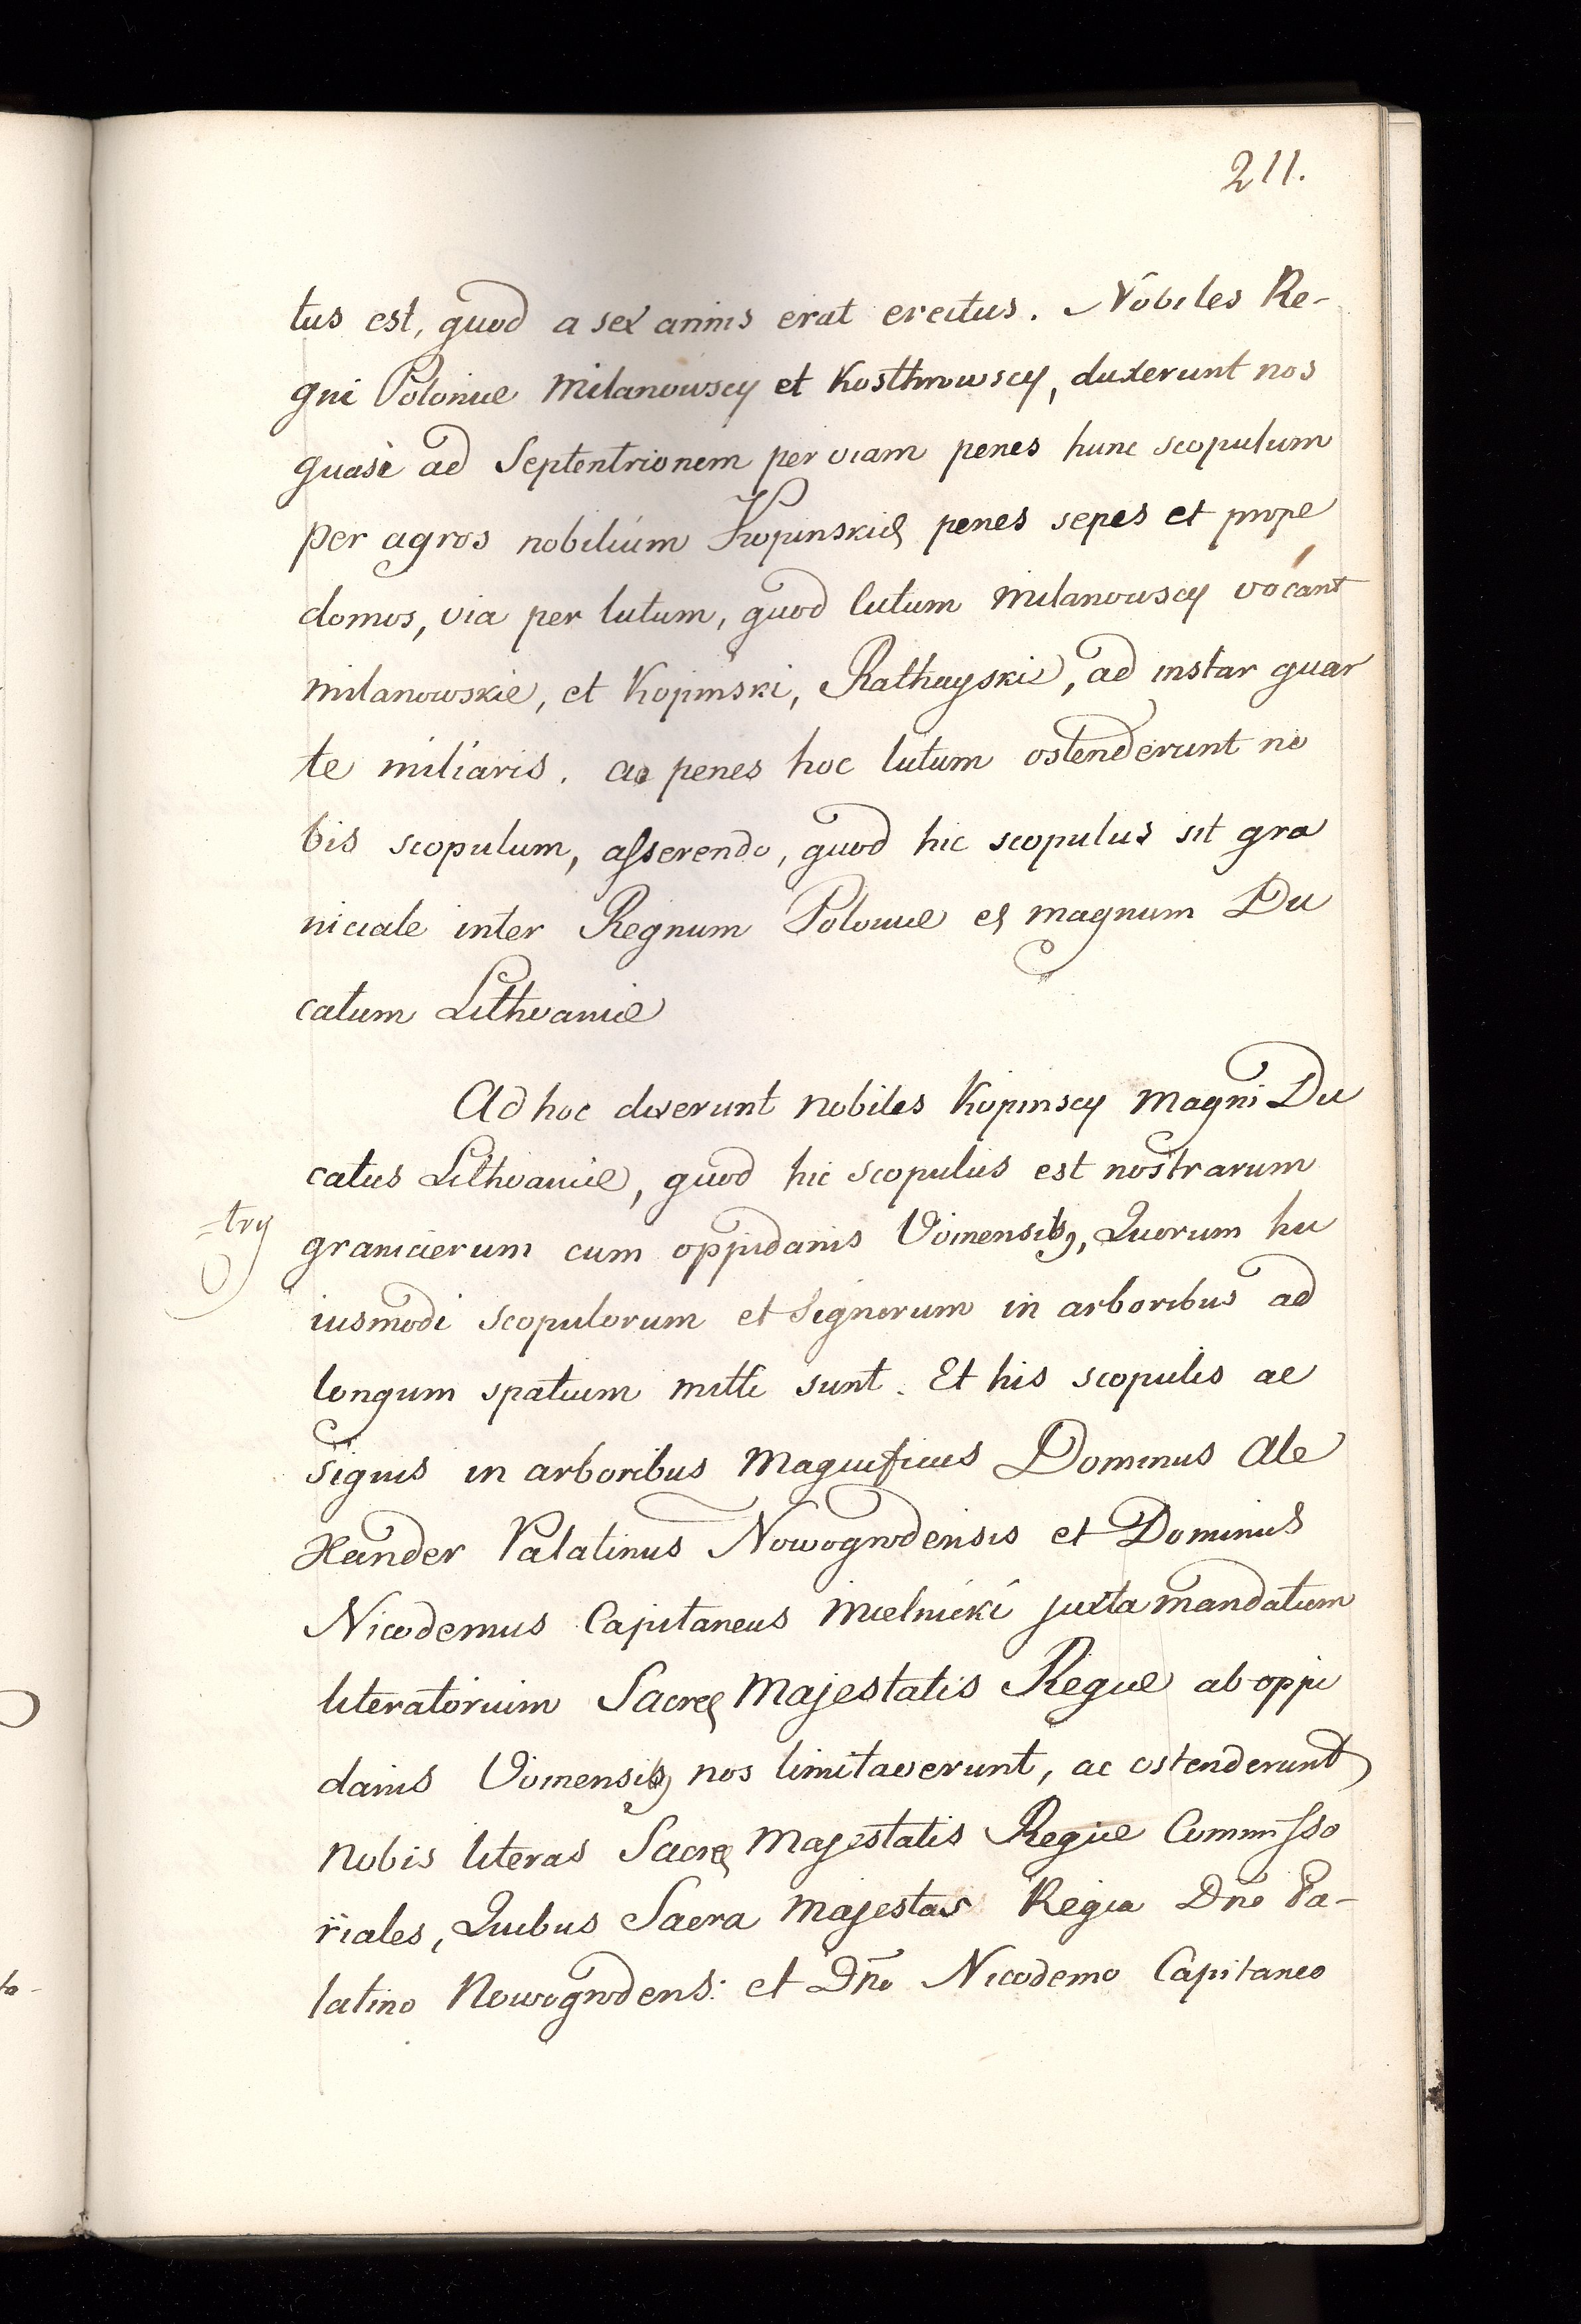 211.
tus est, quod a sex annis erat erectus. Nobiles Re-
gni Poloniae Milanowscy et Kosthrowscy, duxerunt nos
quasi ad Septentrionem per viam penes hunc scopulum
per agros nobilium Kopinskich penes sepes et prope
domos, via per lutum, quod lutum Milanowscy vocant
Milanowskie, et Kopinski, Rathayskie, ad instar quar
te miliaris. ac penes hoc lutum ostenderunt no
bis scopulum, asserendo, quod hic scopulus sit gra
niciale inter Regnum Poloniae et magnum Du
catum Lithvaniae
Ad hoc dixerunt nobiles Kopinscy Magni Du
catus Lithvaniae, quod hic scopulus est nostrarum
=try
granicierum cum oppidanis Voinensibus, Quorum hu
iusmodi scopulorum et Signorum in arboribus ad
longum spatium multi sunt. Et his scopulis ac
signis in arboribus Magnificus Dominus Ale
xander Palatinus Nowogrodensis et Dominus
Nicodemus Capitaneus Mielnicki juxta mandatum
literatorium Sacrae Majestatis Regiae ab oppi
danis Voinensibus nos limitaverunt, ac ostenderunt
nobis literas Sacrae Majestatis Regiae Commisso
riales, Quibus Sacra Majestas Regia Dno Pa-
latino Nowogrodens: et Dno Nicodemo Capitaneo